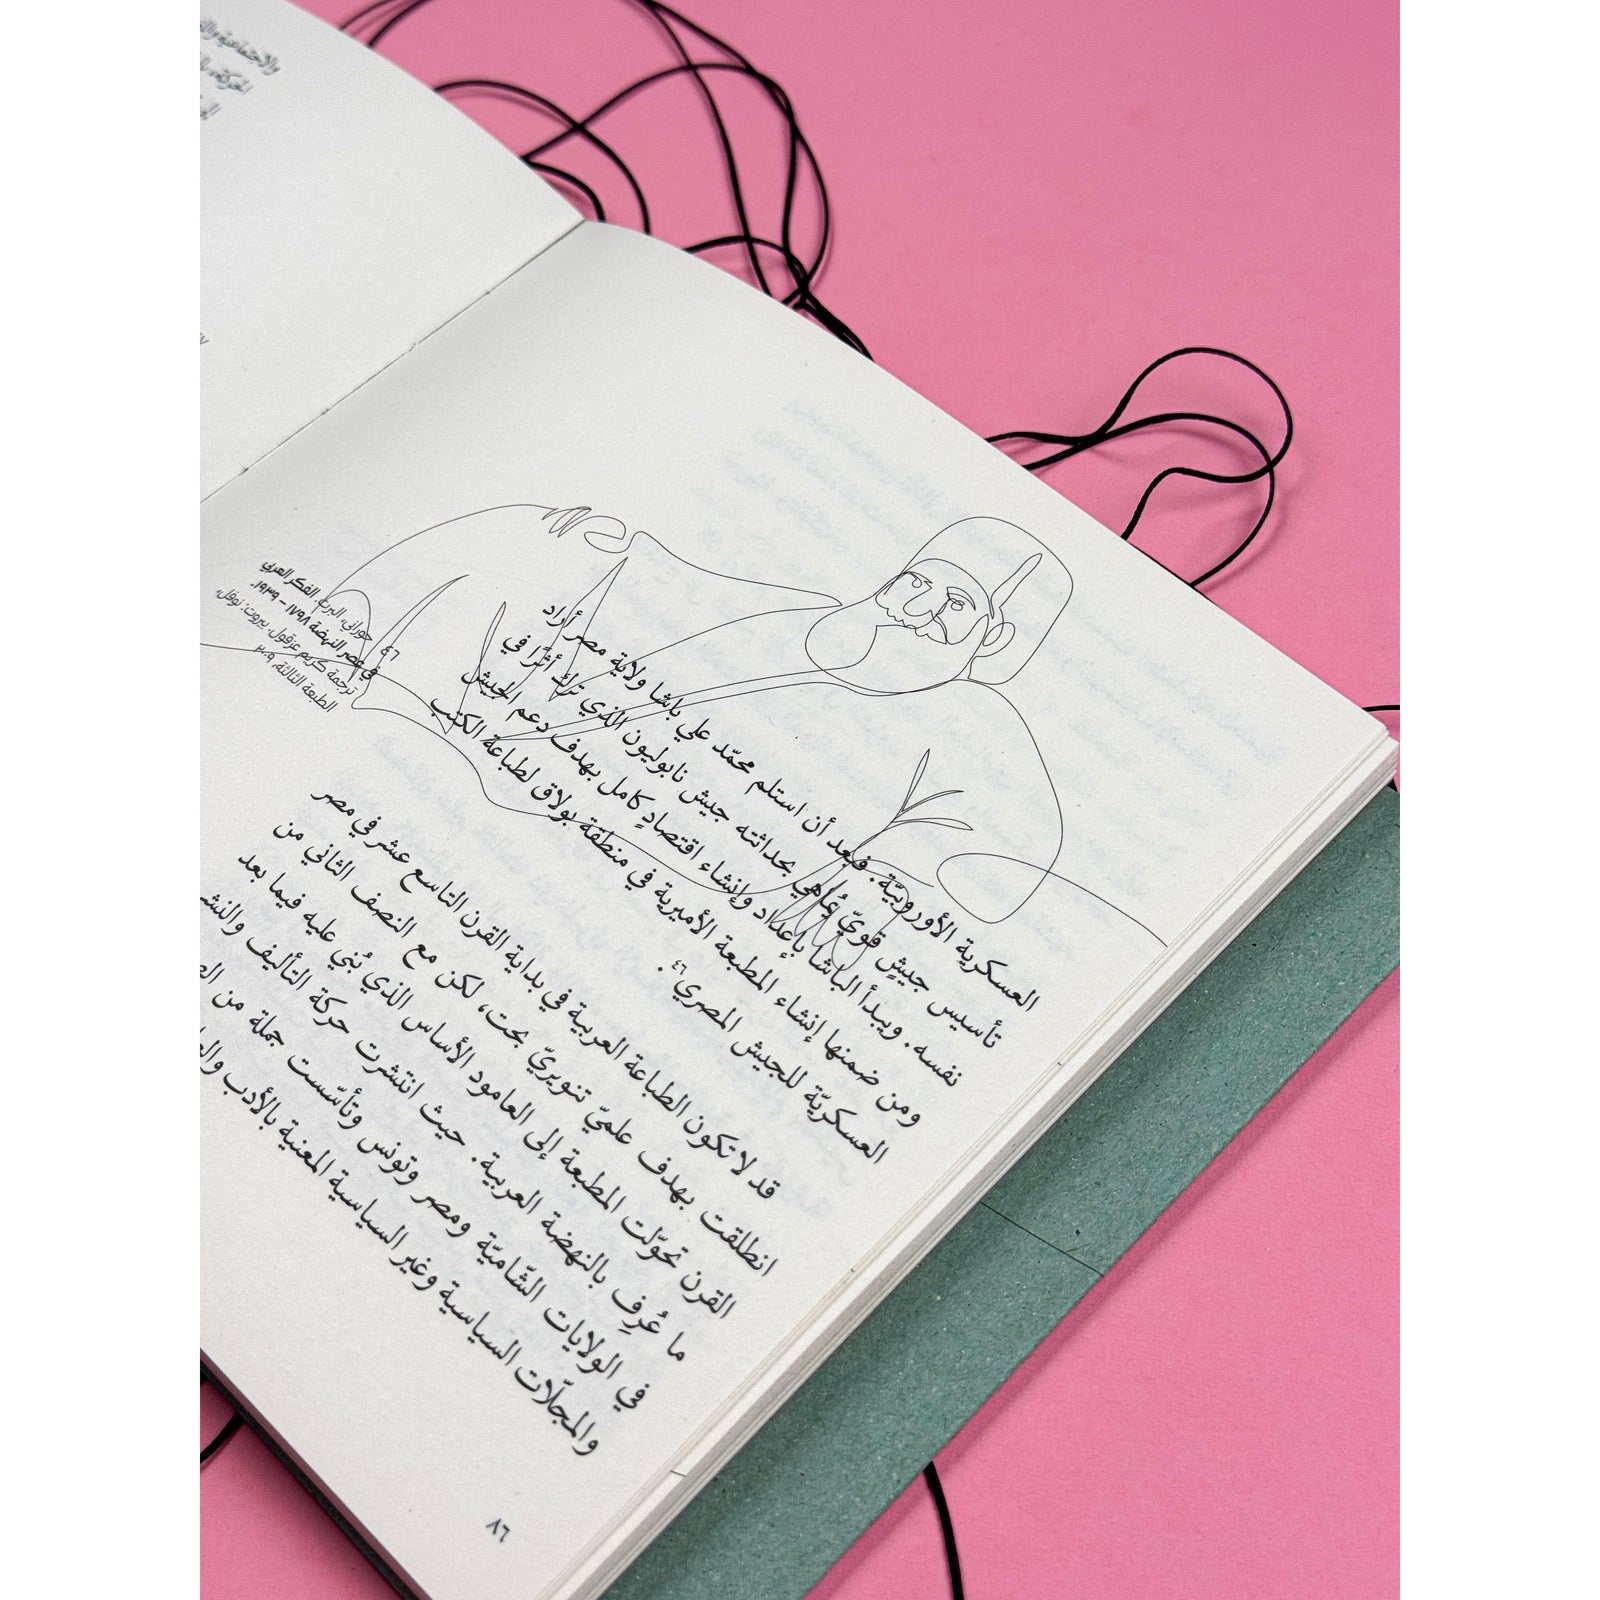 فبعد أن استلم محمّد علي باشا ولاية مصر أراد
العسكرية الأوروبيّة. تأسيس جيشٍ قويٍّ يُباهي بحداثته جيش نابوليون الذي ترك أثرًا في
نفسه. ويبدأ الباشا بإعداد وإنشاء اقتصادٍ كامل بهدف دعم الجيش
ومن ضمنها إنشاء المطبعة الأميرية في منطقة بولاق لطباعة الكتب
العسكريّة للجيش المصري.٤٦
قد لا تكون الطباعة العربية في بداية القرن التاسع عشر في مصر
انطلقت بهدف علميّ تنويريّ بحت، لكن مع النصف الثاني من
القرن تحوّلت المطبعة إلى العامود الأساس الذي بُني عليه فيما بعد
ما عُرِف بالنهضة العربية. حيث انتشرت حركة التأليف والنشر
في الولايات الشّاميّة ومصر وتونس وتأسّست جملة من
والمجلّات السياسية وغير السياسية المعنية بالأدب
٤٦ حوراني، ألبرت. الفكر العربي
في عصر النهضة ١٧٩٨ – ١٩٣٩.
ترجمة كريم عزقول. بيروت: نوفل،
الطبعة الثالثة، ٢٠٠٩
٨٦